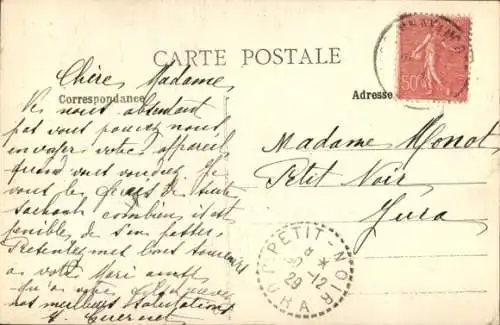 CARTE POSTALE
Correspondance
Adresse
50c
Chère Madame,
Ne nous absentant
pas vous pouvez nous
envoyer votre appareil
quand vous voudrez. Je
vous les de suite
sachant combien il est
pénible de s'en passer.
Présentez mes bons souvenirs
à votre Mari ainsi
qu'à votre
nos meilleurs salutations
Madame Monot
Petit Noir
Jura
PETIT-NOIR
29 -12
JURA